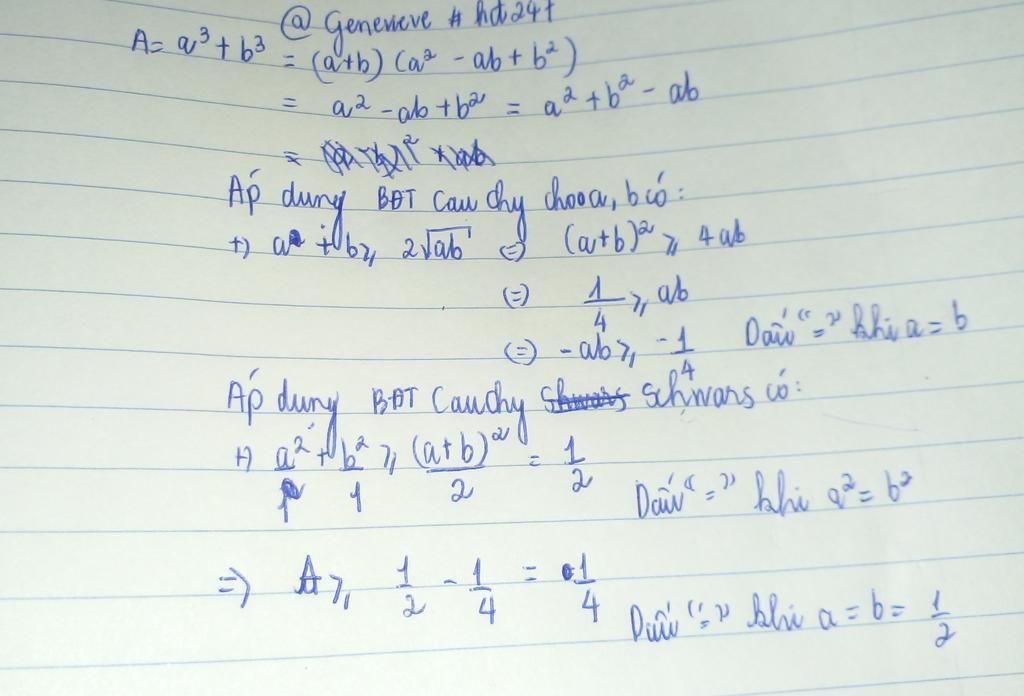 @ Genevieve # hd241
A = a³ + b³ = (a+b) (a² - ab + b²)
= a² - ab + b² = a² + b² - ab
=
Áp dụng BĐT Cauchy cho a, b có:
+) a + b ≥ 2√ab (=) (a+b)² ≥ 4ab
(=) 1/4 ≥ ab
(=) -ab ≥ -1/4 Dấu "=" khi a = b
Áp dụng BĐT Cauchy Schwars có:
+) a²/1 + b²/1 ≥ (a+b)²/2 = 1/2 Dấu "=" khi a² = b²
=> A ≥ 1/2 - 1/4 = 1/4 Dấu "=" khi a = b = 1/2